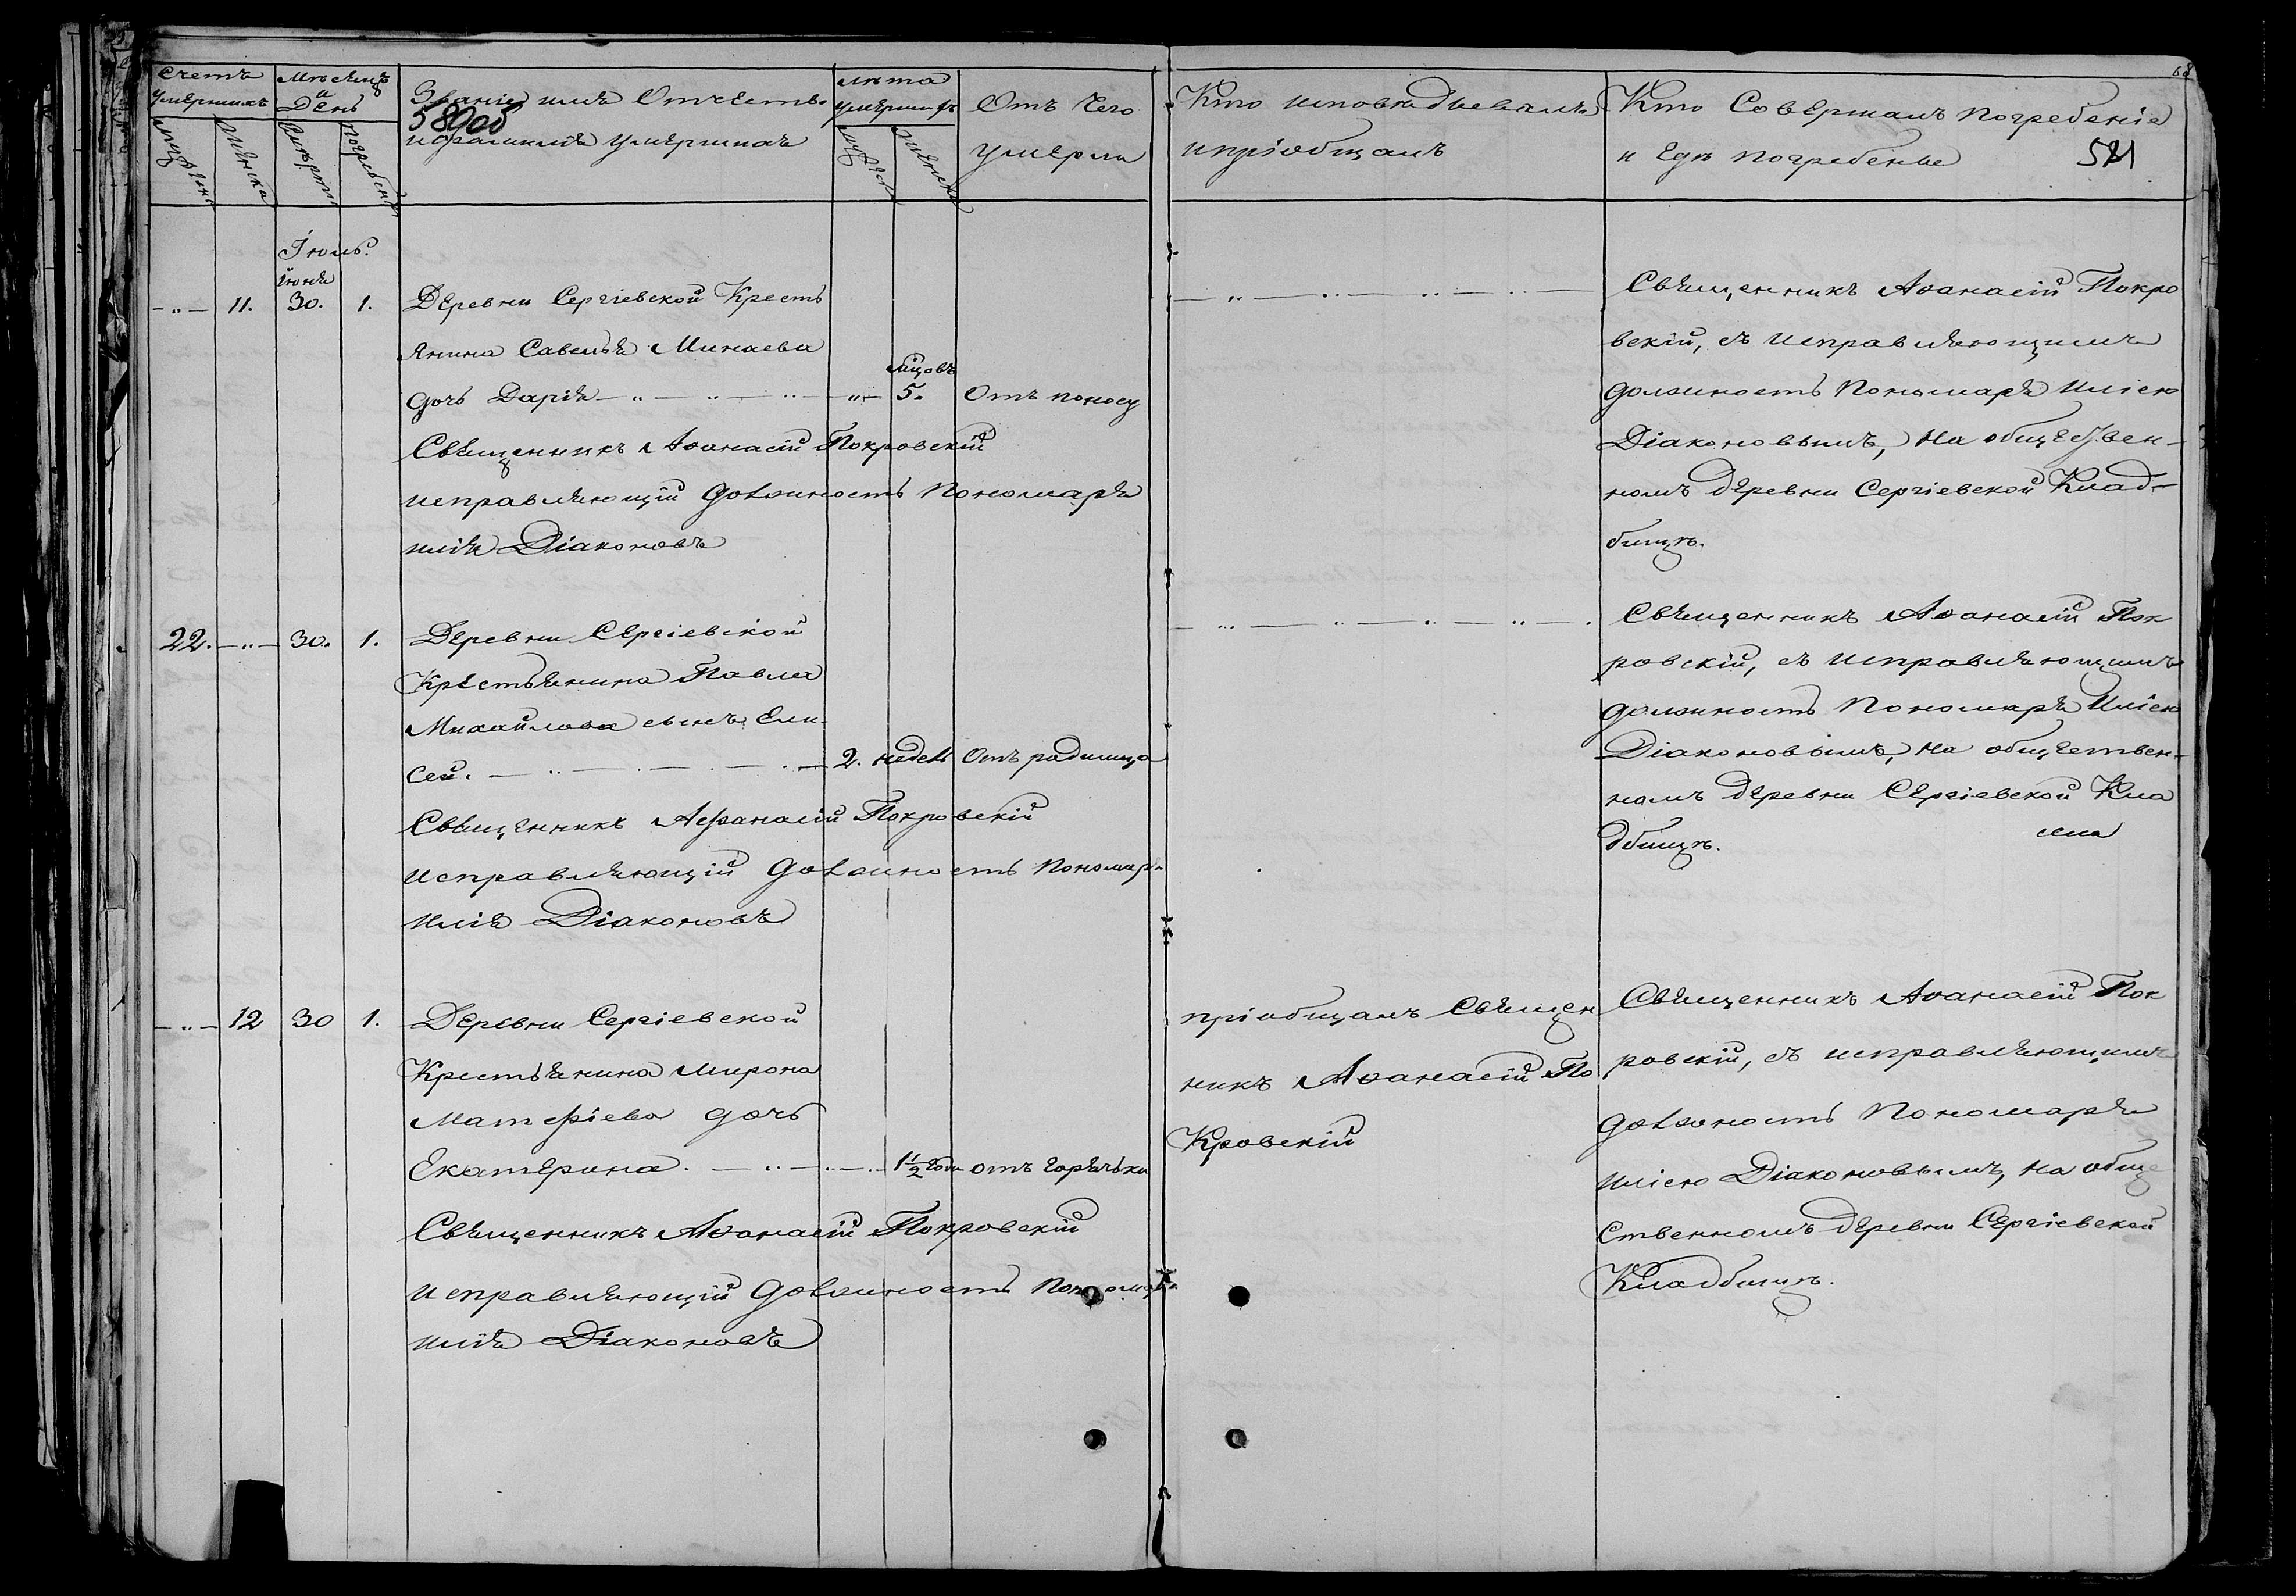 Счетъ умершихъ
Мѣсяцъ и День
Званіе имя Отчество
580об
и фамилія умершихъ
лѣта умершихъ
Отъ чего
умерли
Кто исповѣдывалъ
и пріобщалъ
Кто Совершалъ погребеніе
и гдѣ погребены
521
68
мужска
женска
смерти
погребенія
мужска
женска
Іюль.
іюня
-"- 11. 30. 1. Деревни Сергіевской Кресть
янина Савелья Минаева
мцовъ
дочь Дарія -"- 5. Отъ поносу
Священникъ Аѳанасій Покровскій
исправляющій должность Пономаря
илія Діаконовъ
Священникъ Аѳанасій Покро
вскій, съ исправляющимъ
должность Пономаря Иліею
Діаконовымъ, на обществен-
номъ деревни Сергіевской Клад-
бищѣ.
22. -"- 30. 1. Деревни Сергіевской
Крестьянина Павла
Михайлова сынъ Ели-
сей. 2. недел отъ родимца
Священникъ Афанасій Покровскій
исправляющій должность Пономар.
илія Діаконовъ
Священникъ Аѳанасій Пок
ровскій, съ исправляющимъ
должность Пономаря Иліею
Діаконовымъ, на обществен-
номъ деревни Сергіевской Кла
дбищѣ.
-"- 12 30 1. Деревни Сергіевской
Крестьянина Мирона
Матфіева дочь
Екатерина. 1½ года отъ горячьки
Священникъ Аѳанасій Покровскій
исправляющій должность Пономаря
илія Діаконовъ
пріобщалъ Священ
никъ Аѳанасій По
Кровскій
Священникъ Аѳанасій Пок
ровскій, съ исправляющимъ
должность Пономаря
иліею Діаконовымъ, на обще
ственномъ деревни Сергіевской
Кладбищѣ.